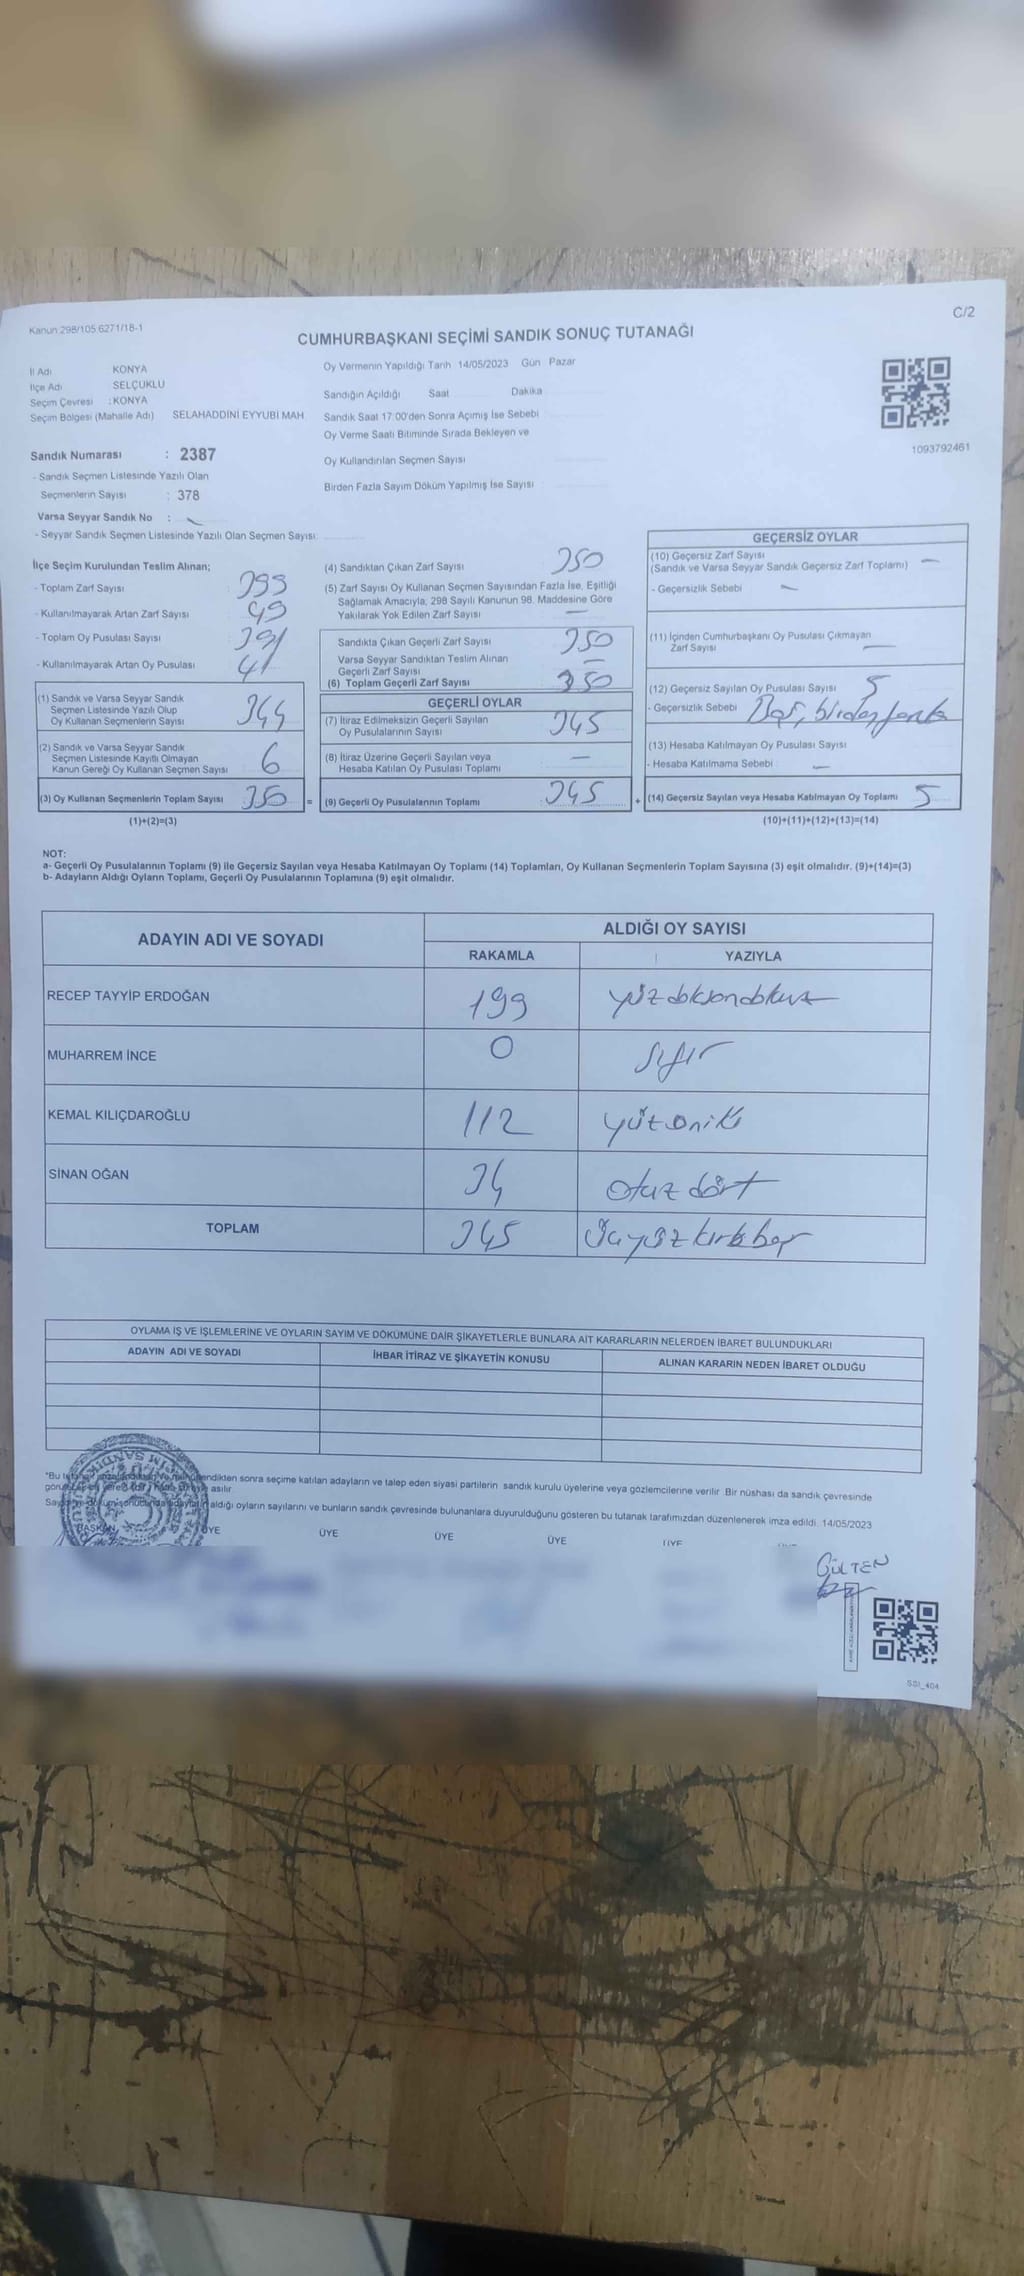 C/2
Kanun 298/105 6271/18-1
CUMHURBAŞKANI SEÇİMİ SANDIK SONUÇ TUTANAĞI
İl Adı KONYA
İlçe Adı SELÇUKLU
Seçim Çevresi : KONYA
Seçim Bölgesi (Mahalle Adı) SELAHADDİNİ EYYUBİ MAH
Sandık Numarası : 2387
- Sandık Seçmen Listesinde Yazılı Olan
Seçmenlerin Sayısı : 378
Varsa Seyyar Sandık No :
- Seyyar Sandık Seçmen Listesinde Yazılı Olan Seçmen Sayısı:
Oy Vermenin Yapıldığı Tarih 14/05/2023 Gün Pazar
Sandığın Açıldığı Saat Dakika
Sandık Saat 17:00'den Sonra Açımış İse Sebebi
Oy Verme Saati Bitiminde Sırada Bekleyen ve
Oy Kullandırılan Seçmen Sayısı
Birden Fazla Sayım Döküm Yapılmış İse Sayısı
1093792461
İlçe Seçim Kurulundan Teslim Alınan;
- Toplam Zarf Sayısı : 399
- Kullanılmayarak Artan Zarf Sayısı : 49
- Toplam Oy Pusulası Sayısı : 391
- Kullanılmayarak Artan Oy Pusulası : 41
(1) Sandık ve Varsa Seyyar Sandık
Seçmen Listesinde Yazılı Olup
Oy Kullanan Seçmenlerin Sayısı 344
(2) Sandık ve Varsa Seyyar Sandık
Seçmen Listesinde Kayıtlı Olmayan
Kanun Gereği Oy Kullanan Seçmen Sayısı 6
(3) Oy Kullanan Seçmenlerin Toplam Sayısı 350 =
(1)+(2)=(3)
(4) Sandıktan Çıkan Zarf Sayısı 350
(5) Zarf Sayısı Oy Kullanan Seçmen Sayısından Fazla İse, Eşitliği
Sağlamak Amacıyla, 298 Sayılı Kanunun 98. Maddesine Göre
Yakılarak Yok Edilen Zarf Sayısı —
Sandıkta Çıkan Geçerli Zarf Sayısı 350
Varsa Seyyar Sandıktan Teslim Alınan
Geçerli Zarf Sayısı —
(6) Toplam Geçerli Zarf Sayısı 350
GEÇERLİ OYLAR
(7) İtiraz Edilmeksizin Geçerli Sayılan
Oy Pusulalarının Sayısı 345
(8) İtiraz Üzerine Geçerli Sayılan veya
Hesaba Katılan Oy Pusulası Toplamı —
(9) Geçerli Oy Pusulalarının Toplamı : 345 +
GEÇERSİZ OYLAR
(10) Geçersiz Zarf Sayısı
(Sandık ve Varsa Seyyar Sandık Geçersiz Zarf Toplamı) —
- Geçersizlik Sebebi —
(11) İçinden Cumhurbaşkanı Oy Pusulası Çıkmayan
Zarf Sayısı —
(12) Geçersiz Sayılan Oy Pusulası Sayısı 5
- Geçersizlik Sebebi Boş, birden fazla
(13) Hesaba Katılmayan Oy Pusulası Sayısı
- Hesaba Katılmama Sebebi —
(14) Geçersiz Sayılan veya Hesaba Katılmayan Oy Toplamı 5
(10)+(11)+(12)+(13)=(14)
NOT:
a- Geçerli Oy Pusulalarının Toplamı (9) ile Geçersiz Sayılan veya Hesaba Katılmayan Oy Toplamı (14) Toplamları, Oy Kullanan Seçmenlerin Toplam Sayısına (3) eşit olmalıdır. (9)+(14)=(3)
b- Adayların Aldığı Oyların Toplamı, Geçerli Oy Pusulalarının Toplamına (9) eşit olmalıdır.
ADAYIN ADI VE SOYADI ALDIĞI OY SAYISI
RAKAMLA YAZIYLA
RECEP TAYYİP ERDOĞAN 199 yüz doksan dokuz
MUHARREM İNCE 0 sıfır
KEMAL KILIÇDAROĞLU 112 yüz oniki
SİNAN OĞAN 34 otuz dört
TOPLAM 345 üçyüz kırkbeş
OYLAMA İŞ VE İŞLEMLERİNE VE OYLARIN SAYIM VE DÖKÜMÜNE DAİR ŞİKAYETLERLE BUNLARA AİT KARARLARIN NELERDEN İBARET BULUNDUKLARI
ADAYIN ADI VE SOYADI İHBAR İTİRAZ VE ŞİKAYETİN KONUSU ALINAN KARARIN NEDEN İBARET OLDUĞU
*Bu sonra seçime katılan adayların ve talep eden siyasi partilerin sandık kurulu üyelerine veya gözlemcilerine verilir. Bir nüshası da sandık çevresinde
asılır.
aldığı oyların sayılarını ve bunların sandık çevresinde bulunanlara duyurulduğunu gösteren bu tutanak tarafımızdan düzenlenerek imza edildi. 14/05/2023
BAŞKAN ÜYE ÜYE ÜYE ÜYE ÜYE
GÜLTEN
SSI_404